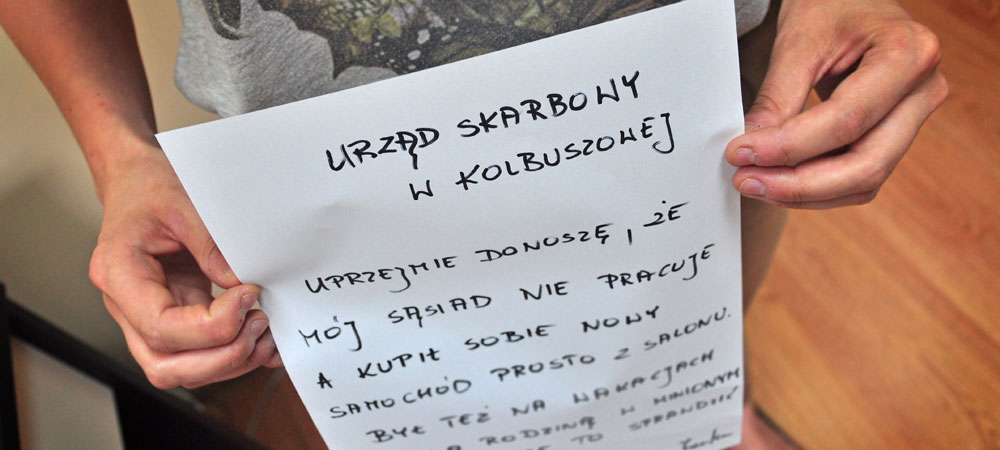 URZĄD SKARBOWY
W KOLBUSZOWEJ
UPRZEJMIE DONOSZĘ, ŻE
MÓJ SĄSIAD NIE PRACUJE
A KUPIŁ SOBIE NOWY
SAMOCHÓD PROSTO Z SALONU.
BYŁ TEŻ NA WAKACJACH
RODZINĄ W MINIONYM
TO SPRAWDZIĆ